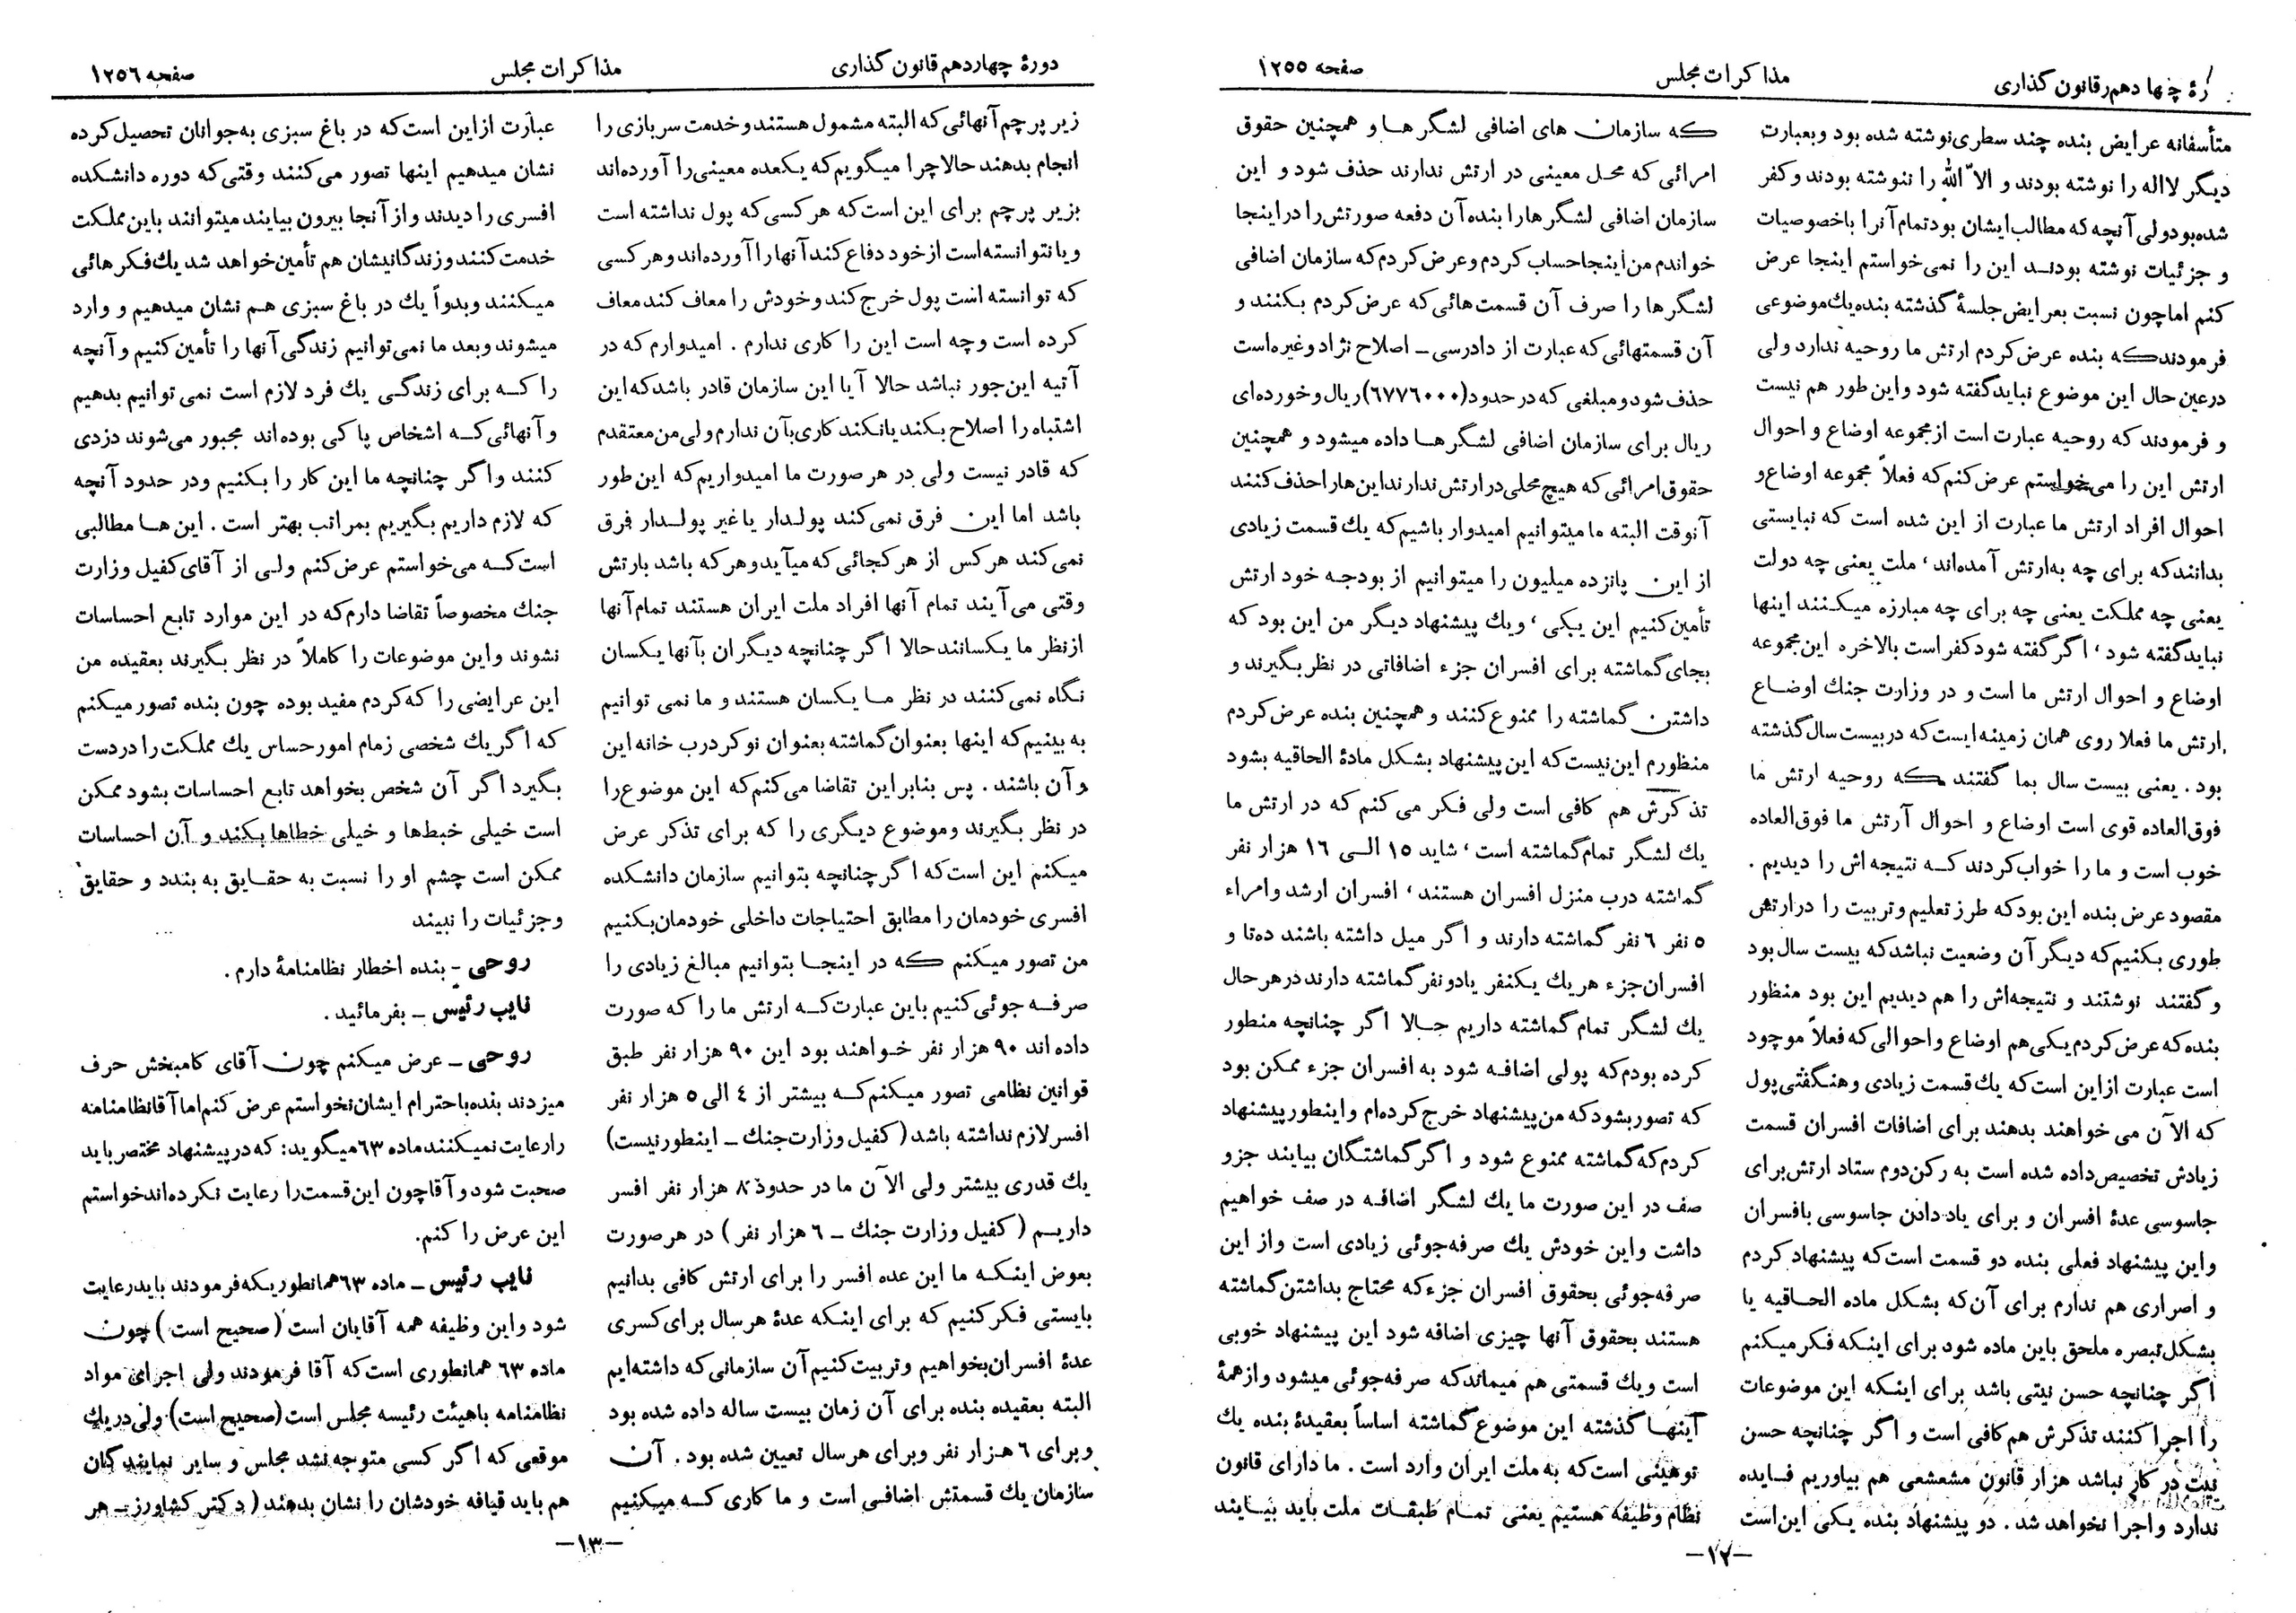 دورهٔ چهاردهم قانون گذاری
مذاکرات مجلس
صفحه ۱۲۵۵
متأسفانه عرایض بنده چند سطری نوشته شده بود و بعبارت
دیگر لااله را نوشته بودند و الا الله را ننوشته بودند و کفر
شده بود ولی آنچه که مطالب ایشان بود تمام آنرا با خصوصیات
و جزئیات نوشته بودند این را نمی خواستم اینجا عرض
کنم اما چون نسبت بعرایض جلسهٔ گذشته بنده یك موضوعی
فرمودند که بنده عرض کردم ارتش ما روحیه ندارد ولی
درعین حال این موضوع نباید گفته شود و این طور هم نیست
و فرمودند که روحیه عبارت است از مجموعه اوضاع و احوال
ارتش این را می خواستم عرض کنم که فعلاً مجموعه اوضاع و
احوال افراد ارتش ما عبارت از این شده است که نبایستی
بدانند که برای چه به ارتش آمده اند، ملت یعنی چه دولت
یعنی چه مملکت یعنی چه برای چه مبارزه میکنند اینها
نباید گفته شود، اگر گفته شود کفر است بالاخره این مجموعه
اوضاع و احوال ارتش ما است و در وزارت جنك اوضاع
ارتش ما فعلا روی همان زمینه ایست که در بیست سال گذشته
بود . یعنی بیست سال بما گفتند که روحیه ارتش ما
فوق العاده قوی است اوضاع و احوال آرتش ما فوق العاده
خوب است و ما را خواب کردند که نتیجه اش را دیدیم .
مقصود عرض بنده این بود که طرز تعلیم و تربیت را در ارتش
طوری بکنیم که دیگر آن وضعیت نباشد که بیست سال بود
و گفتند نوشتند و نتیجه اش را هم دیدیم این بود منظور
بنده که عرض کردم یکی هم اوضاع و احوالی که فعلاً موجود
است عبارت ازاین است که یك قسمت زیادی و هنگفتی پول
که الآن می خواهند بدهند برای اضافات افسران قسمت
زیادش تخصیص داده شده است به رکن دوم ستاد ارتش برای
جاسوسی عدهٔ افسران و برای یاد دادن جاسوسی بافسران
واین پیشنهاد فعلی بنده دو قسمت است که پیشنهاد کردم
و اصراری هم ندارم برای آن که بشکل ماده الحاقیه یا
بشکل تبصره ملحق باین ماده شود برای اینکه فکر میکنم
اگر چنانچه حسن نیتی باشد برای اینکه این موضوعات
را اجرا کنند تذکرش هم کافی است و اگر چنانچه حسن
نیت در کار نباشد هزار قانون مشعشعی هم بیاوریم فایده
ندارد و اجرا نخواهد شد . دو پیشنهاد بنده یکی این است
که سازمان های اضافی لشگر ها و همچنین حقوق
امرائی که محل معینی در ارتش ندارند حذف شود و این
سازمان اضافی لشگر ها را بنده آن دفعه صورتش را در اینجا
خواندم من اینجا حساب کردم و عرض کردم که سازمان اضافی
لشگر ها را صرف آن قسمت هائی که عرض کردم بکنند و
آن قسمتهائی که عبارت از دادرسی ـ اصلاح نژاد وغیره است
حذف شود و مبلغی که در حدود (۶۷۷۶۰۰۰) ریال و خورده ای
ریال برای سازمان اضافی لشگر ها داده میشود و همچنین
حقوق امرائی که هیچ محلی در ارتش ندارند این ها را حذف کنند
آنوقت البته ما میتوانیم امیدوار باشیم که یك قسمت زیادی
از این پانزده میلیون را میتوانیم از بودجه خود ارتش
تأمین کنیم این یکی، و یك پیشنهاد دیگر من این بود که
بجای گماشته برای افسران جزء اضافاتی در نظر بگیرند و
داشتن گماشته را ممنوع کنند و همچنین بنده عرض کردم
منظورم این نیست که این پیشنهاد بشکل مادهٔ الحاقیه بشود
تذکرش هم کافی است ولی فکر می کنم که در ارتش ما
یك لشگر تمام گماشته است، شاید ۱۵ الی ۱۶ هزار نفر
گماشته درب منزل افسران هستند، افسران ارشد و امراء
۵ نفر ۶ نفر گماشته دارند و اگر میل داشته باشند ده تا و
افسران جزء هر یك یکنفر یا دو نفر گماشته دارند در هر حال
یك لشگر تمام گماشته داریم حالا اگر چنانچه منظور
کرده بودم که پولی اضافه شود به افسران جزء ممکن بود
که تصور بشود که من پیشنهاد خرج کرده ام و اینطور پیشنهاد
کردم که گماشته ممنوع شود و اگر گماشتگان بیایند جزو
صف در این صورت ما یك لشگر اضافه در صف خواهیم
داشت واین خودش یك صرفه جوئی زیادی است واز این
صرفه جوئی بحقوق افسران جزء که محتاج بداشتن گماشته
هستند بحقوق آنها چیزی اضافه شود این پیشنهاد خوبی
است ویك قسمتی هم میماند که صرفه جوئی میشود وازهمهٔ
آینها گذشته این موضوع گماشته اساساً بعقیدهٔ بنده یك
توهینی است که به ملت ایران وارد است . ما دارای قانون
نظام وظیفه هستیم یعنی تمام طبقات ملت باید بیایند
ـ۱۲ـ
دورهٔ چهاردهم قانون گذاری
مذاکرات مجلس
صفحه ۱۲۵۶
زیر پرچم آنهائی که البته مشمول هستند و خدمت سربازی را
انجام بدهند حالا چرا میگویم که یکعده معینی را آورده اند
بزیر پرچم برای این است که هر کسی که پول نداشته است
ویا نتوانسته است از خود دفاع کند آنها را آورده اند و هر کسی
که توانسته است پول خرج کند و خودش را معاف کند معاف
کرده است وچه است این را کاری ندارم . امیدوارم که در
آتیه این جور نباشد حالا آیا این سازمان قادر باشد که این
اشتباه را اصلاح بکند یا نکند کاری بآن ندارم ولی من معتقدم
که قادر نیست ولی در هر صورت ما امیدواریم که این طور
باشد اما این فرق نمی کند پولدار یا غیر پولدار فرق
نمی کند هر کس از هر کجائی که میآید و هر که باشد بارتش
وقتی می آیند تمام آنها افراد ملت ایران هستند تمام آنها
ازنظر ما یکسانند حالا اگر چنانچه دیگران بآنها یکسان
نگاه نمی کنند در نظر ما یکسان هستند و ما نمی توانیم
به بینیم که اینها بعنوان گماشته بعنوان نوکر درب خانه این
و آن باشند . پس بنابراین تقاضا می کنم که این موضوع را
در نظر بگیرند وموضوع دیگری را که برای تذکر عرض
میکنم این است که اگر چنانچه بتوانیم سازمان دانشکده
افسری خودمان را مطابق احتیاجات داخلی خودمان بکنیم
من تصور میکنم که در اینجا بتوانیم مبالغ زیادی را
صرفه جوئی کنیم باین عبارت که ارتش ما را که صورت
داده اند ۹۰ هزار نفر خواهند بود این ۹۰ هزار نفر طبق
قوانین نظامی تصور میکنم که بیشتر از ۴ الی ۵ هزار نفر
افسر لازم نداشته باشد (کفیل وزارت جنك ـ اینطور نیست)
یك قدری بیشتر ولی الآن ما در حدود ۸ هزار نفر افسر
داریم (کفیل وزارت جنك ـ ۶ هزار نفر) در هر صورت
بعوض اینکه ما این عده افسر را برای ارتش کافی بدانیم
بایستی فکر کنیم که برای اینکه عدهٔ هر سال برای کسری
عدهٔ افسران بخواهیم و تربیت کنیم آن سازمانی که داشته ایم
البته بعقیده بنده برای آن زمان بیست ساله داده شده بود
وبرای ۶ هزار نفر وبرای هر سال تعیین شده بود . آن
سازمان یك قسمتش اضافی است و ما کاری که میکنیم
عبارت ازاین است که در باغ سبزی به جوانان تحصیل کرده
نشان میدهیم اینها تصور می کنند وقتی که دوره دانشکده
افسری را دیدند و از آنجا بیرون بیایند میتوانند باین مملکت
خدمت کنند و زندگانیشان هم تأمین خواهد شد یك فکر هائی
میکنند و بدواً یك در باغ سبزی هم نشان میدهیم و وارد
میشوند و بعد ما نمی توانیم زندگی آنها را تأمین کنیم و آنچه
را که برای زندگی یك فرد لازم است نمی توانیم بدهیم
و آنهائی که اشخاص پاکی بوده اند مجبور می شوند دزدی
کنند و اگر چنانچه ما این کار را بکنیم ودر حدود آنچه
که لازم داریم بگیریم بمراتب بهتر است . این ها مطالبی
است که می خواستم عرض کنم ولی از آقای کفیل وزارت
جنك مخصوصاً تقاضا دارم که در این موارد تابع احساسات
نشوند و این موضوعات را کاملاً در نظر بگیرند بعقیده من
این عرایضی را که کردم مفید بوده چون بنده تصور میکنم
که اگر یك شخصی زمام امور حساس یك مملکت را در دست
بگیرد اگر آن شخص بخواهد تابع احساسات بشود ممکن
است خیلی خبط ها و خیلی خطاها بکند و آن احساسات
ممکن است چشم او را نسبت به حقایق به بندد و حقایق
و جزئیات را نبیند
روحی ـ بنده اخطار نظامنامهٔ دارم .
نایب رئیس ـ بفرمائید .
روحی ـ عرض میکنم چون آقای کامبخش حرف
میزدند بنده باحترام ایشان نخواستم عرض کنم اما آقا نظامنامه
را رعایت نمیکنند ماده ۶۳ میگوید: که در پیشنهاد مختصر باید
صحبت شود و آقا چون این قسمت را رعایت نکرده اند خواستم
این عرض را کنم.
نایب رئیس ـ ماده ۶۳ همانطوریکه فرمودند باید رعایت
شود واین وظیفه همه آقایان است (صحیح است) چون
ماده ۶۳ همانطوری است که آقا فرمودند ولی اجرای مواد
نظامنامه با هیئت رئیسه مجلس است (صحیح است) ولی در یك
موقعی که اگر کسی متوجه نشد مجلس و سایر نمایندگان
هم باید قیافه خودشان را نشان بدهند (دکتر کشاورز ـ هر
ـ۱۳ـ